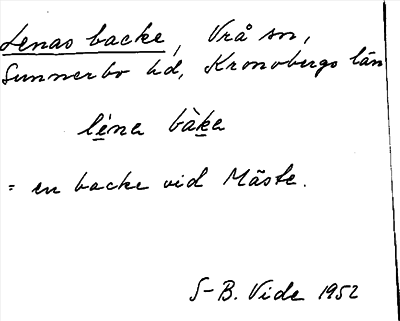 Lenas backe, Vrå sn,
Sunnerbo hd, Kronobergs län
léna bàka
= en backe vid Mäste.
S-B. Vide 1952